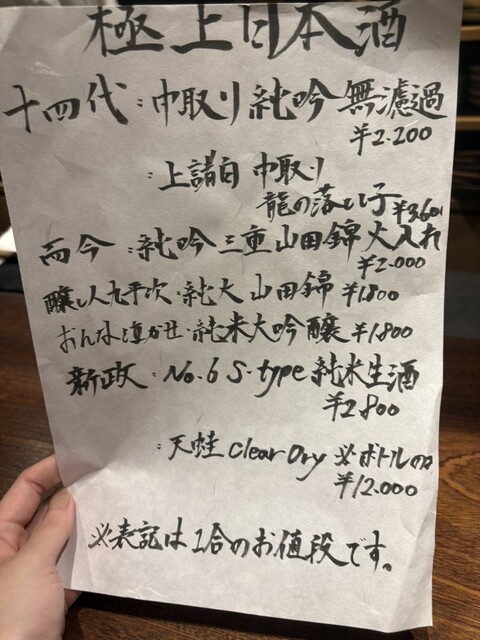 極上日本酒
十四代:中取り純吟 無濾過
¥2.200
:上諸白 中取り
龍の落し子 ¥3.600
而今:純吟 三重山田錦 火入れ
¥2.000
醸し人九平次・純大 山田錦 ¥1800
おんな泣かせ・純米大吟醸 ¥1800
新政:No.6 S-type 純米生酒
¥2800
:天蛙 Clear Dry ※ボトルのみ
¥12.000
※表記は1合のお値段です。